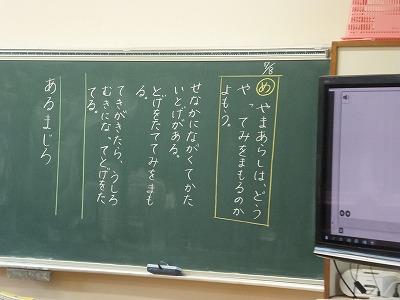 7/8
め やまあらしは、どう
やってみをまもるのか
よもう。
せなかにながくてかた
いとげがある。
とげをたててみをまも
る。
てきがきたら、うしろ
むきになってとげをた
てる。
あるまじろ